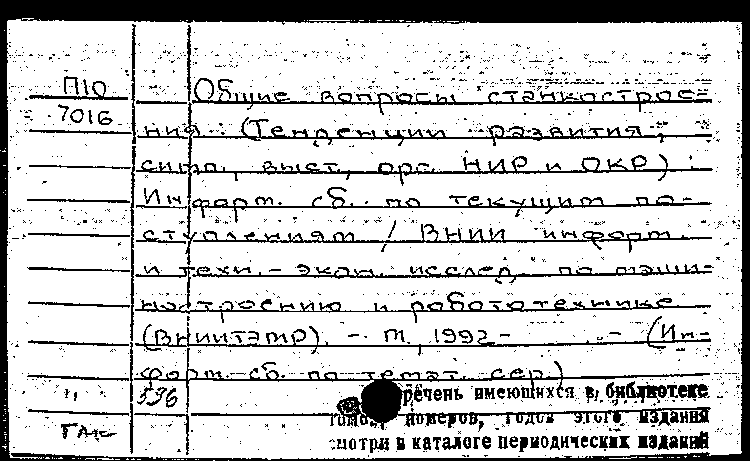 П10
7016
Общие вопросы станкострое-
ния (Тенденции развития,
симп., выст., орг. НИР и ОКР) :
Информ. сб. по текущим по-
ступлениям / ВНИИ информ.
и техн.-экон. исслед. по маши-
ностроению и робототехнике
(ВНИИТЭМР). - М., 1992- . - (Ин-
форм. сб. по темат. сер.)
536
речень имеющихся в библиотеке
томов, номеров, годов этого издания
смотри в каталоге периодических изданий